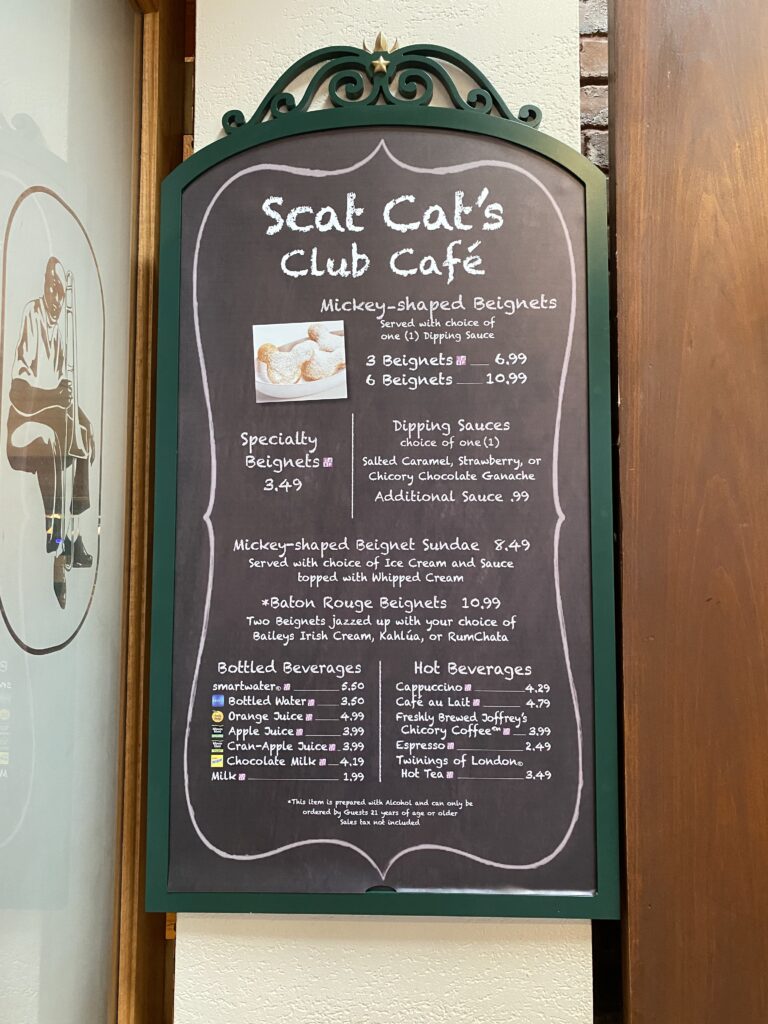 Scat Cat's
Club Café
Mickey-shaped Beignets
Served with choice of
one (1) Dipping Sauce
3 Beignets 6.99
6 Beignets 10.99
Specialty
Beignets
3.49
Dipping Sauces
choice of one (1)
Salted Caramel, Strawberry, or
Chicory Chocolate Ganache
Additional Sauce .99
Mickey-shaped Beignet Sundae 8.49
Served with choice of Ice Cream and Sauce
topped with Whipped Cream
*Baton Rouge Beignets 10.99
Two Beignets jazzed up with your choice of
Baileys Irish Cream, Kahlúa, or RumChata
Bottled Beverages
smartwater® 5.50
Bottled Water 3.50
Orange Juice 4.99
Apple Juice 3.99
Cran-Apple Juice 3.99
Chocolate Milk 4.19
Milk 1.99
Hot Beverages
Cappuccino 4.29
Café au Lait 4.79
Freshly Brewed Joffrey's
Chicory Coffee™ 3.99
Espresso 2.49
Twinings of London®
Hot Tea 3.49
*This item is prepared with Alcohol and can only be
ordered by Guests 21 years of age or older
Sales tax not included